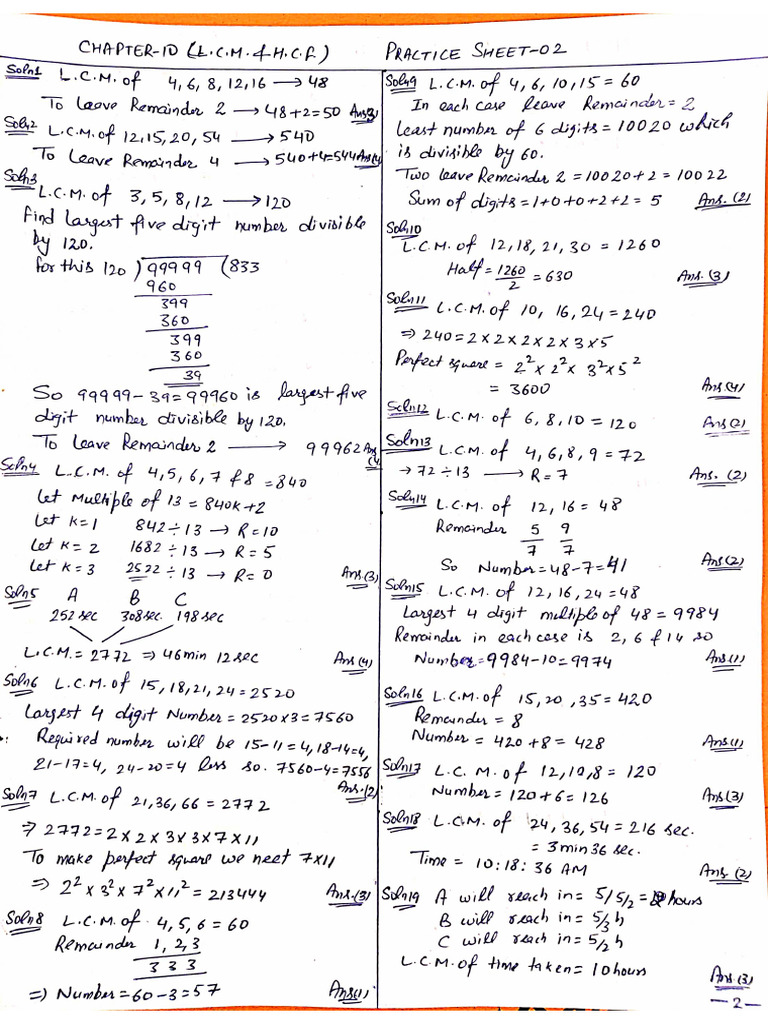 CHAPTER-10 (L.C.M. & H.C.F.) PRACTICE SHEET-02
Soln1 L.C.M. of 4, 6, 8, 12, 16 → 48
To leave Remainder 2 → 48+2=50 Ans(3)
Soln2 L.C.M. of 12, 15, 20, 54 → 540
To leave Remainder 4 → 540+4=544 Ans(4)
Soln3
L.C.M. of 3, 5, 8, 12 → 120
Find largest five digit number divisible
by 120.
for this 120) 99999 (833
960
399
360
399
360
39
So 99999-39=99960 is largest five
digit number divisible by 120.
To leave Remainder 2 → 99962 Ans(4)
Soln4 L.C.M. of 4, 5, 6, 7 & 8 = 840
Let Multiple of 13 = 840K+2
Let K=1 842÷13 → R=10
Let K=2 1682÷13 → R=5
Let K=3 2522÷13 → R=0 Ans.(3)
Soln5 A B C
252 sec 308 sec. 198 sec
L.C.M.= 2772 ⇒ 46min 12sec Ans(4)
Soln6 L.C.M. of 15, 18, 21, 24 = 2520
Largest 4 digit Number = 2520×3=7560
∴ Required number will be 15-11=4, 18-14=4,
21-17=4, 24-20=4 less so. 7560-4=7556
Ans.(2)
Soln7 L.C.M. of 21, 36, 66 = 2772
⇒ 2772=2×2×3×3×7×11
To make perfect square we neet 7×11
⇒ 2²×3²×7²×11²=213444 Ans.(3)
Soln8 L.C.M. of 4, 5, 6 = 60
Remainder 1, 2, 3
3 3 3
⇒ Number=60-3=57 Ans(1)
Soln9 L.C.M. of 4, 6, 10, 15 = 60
In each case leave Remainder = 2
Least number of 6 digits = 10020 which
is divisible by 60.
Two leave Remainder 2 = 10020+2 = 10022
Sum of digits=1+0+0+2+2=5 Ans.(2)
Soln10
L.C.M. of 12, 18, 21, 30 = 1260
Half = 1260/2 = 630 Ans.(3)
Soln11 L.C.M. of 10, 16, 24 = 240
⇒ 240=2×2×2×2×3×5
Perfect square = 2²×2²×3²×5²
= 3600 Ans(4)
Soln12 L.C.M. of 6, 8, 10 = 120 Ans(2)
Soln13 L.C.M. of 4, 6, 8, 9 = 72
→ 72÷13 → R=7 Ans.(2)
Soln14 L.C.M. of 12, 16 = 48
Remainder 5 9
7 7
So Number=48-7=41 Ans(2)
Soln15 L.C.M. of 12, 16, 24=48
Largest 4 digit multiple of 48 = 9984
Remainder in each case is 2, 6 & 14 so
Number=9984-10=9974 Ans(1)
Soln16 L.C.M. of 15, 20, 35 = 420
Remainder = 8
Number = 420+8 = 428 Ans(1)
Soln17 L.C.M. of 12, 10, 8 = 120
Number = 120+6 = 126 Ans(3)
Soln18 L.C.M. of 24, 36, 54 = 216 sec.
= 3min 36 sec.
Time = 10:18:36 AM Ans.(2)
Soln19 A will reach in= 5/5/2= 2 hours
B will reach in= 5/3 h
C will reach in= 5/2 h
L.C.M. of time taken = 10 hours
Ans.(3)
-2-